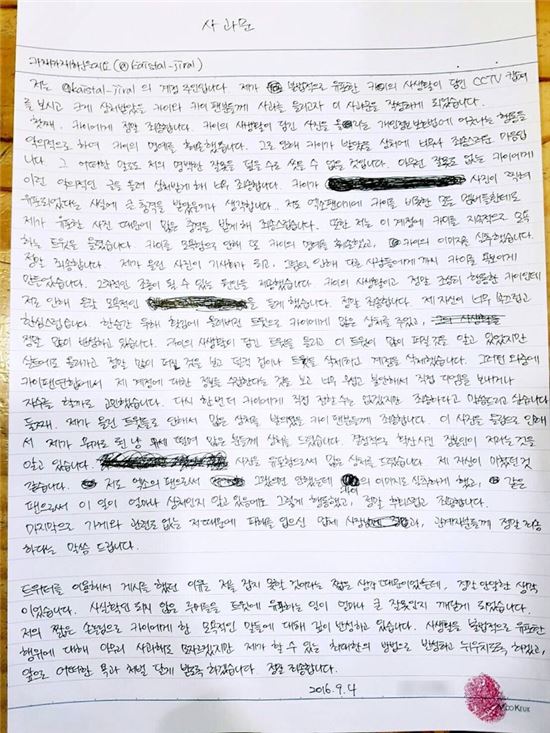 사 과 문
(@kaistal_jiral)
저는 @kaistal_jiral 의 계정 주인입니다. 제가 불법적으로 유포한 카이의 사생활이 담긴 CCTV 캡쳐
를 보시고 크게 상처받았을 카이와 카이 팬분들께 사과를 드리고자 이 사과문을 작성하게 되었습니다.
첫째, 카이에게 정말 죄송합니다. 카이의 사생활이 담긴 사진을 유포하는 개인정보보호법에 어긋나는 행동을
악의적으로 하여 카이의 명예를 훼손했습니다. 그로 인해 카이가 받았을 상처에 너무나 죄송스러운 마음입
니다. 그 어떠한 말로도 저의 명백한 잘못을 덮을 수도 씻을 수 없을 것입니다. 아무런 잘못도 없는 카이에게
이런 악의적인 글을 올려 상처받게 해 너무 죄송합니다. 카이가 사진이 찍혀
유포되었다는 사실에 큰 충격을 받았을거라 생각합니다. 저는 엑소팬이기에 카이를 비롯한 모든 멤버들한테도
제가 유포한 사진 때문에 많은 충격을 받게 해 죄송스럽습니다. 또한 저는 이 계정에 카이를 지속적으로 모욕
하는 트윗을 올렸습니다. 카이를 모욕함으로 인해 또 카이의 명예를 훼손했고, 카이의 이미지를 실추했습니다.
정말 죄송합니다. 제가 올린 사진이 기사화가 되고, 그로 인해 다른 사람들에게 까지 카이를 욕보이게
만들었습니다. 조롱이 될 수 있는 원인을 제공했습니다. 카이의 사생활이고 정말 조심히 행동한 카이인데
저로 인해 온갖 모욕적인 을 듣게 했습니다. 정말 죄송합니다. 제 자신이 너무 부끄럽고
한심스럽습니다. 한순간 올려버린 트윗으로 카이에게 많은 상처를 주었고,
정말 많이 반성하고 있습니다. 카이의 사생활이 담긴 트윗을 올리고 이 트윗이 많이 퍼질 것을 알고 있었지만
실트에도 올라가고 정말 많이 퍼질 것을 보고 덜컥 겁이나 트윗을 삭제하고 계정을 삭제했습니다. 그러던 와중에
카이팬연합에서 제 계정에 대한 정보를 수집한다는 것을 보고 너무 무섭고 불안해서 직접 다가올 보내거나
자수를 할까도 고민했습니다. 다시 한번 더 카이에게 직접 전할 수는 없겠지만 죄송하다고 말씀드리고 싶습니다
둘째, 제가 올린 트윗들로 인해서 많은 상처를 받았을 카이 팬분들께 죄송합니다. 이 사진을 올림으로 인해
서 제가 유포가 된 날 부터 많은 분들께 상처를 드렸습니다. 결정적으로 확산시킨 장본인이 저라는 것을
알고 있습니다. 사진을 유포함으로써 많은 상처를 드렸습니다. 제 자신이 미쳤던 것
같습니다. 저도 엑소의 팬으로써 그랬으면 안됐는데 카이의 이미지도 실추하게 했고, 같은
팬으로써 이 일이 얼마나 상처인지 알고 있음에도 그렇게 행동했고, 정말 후회스럽고 죄송합니다.
마지막으로 가게와 관련도 없는 저 때문에 피해를 입으신 업체 사장님과, 관계자분들께 정말 죄송
하다는 말씀 드립니다.
트위터를 이용해서 게시를 했던 이유는 저를 잡지 못할 것이라는 짧은 생각 때문이었는데, 정말 안일한 생각
이었습니다. 사실확인 되지 않은 루머들을 트윗에 유포하는 일이 얼마나 큰 잘못인지 깨닫게 되었습니다.
저의 짧은 손놀림으로 카이에게 한 모욕적인 말들에 대해 깊이 반성하고 있습니다. 사생활을 불법적으로 유포한
행위에 대해 아무리 사과해도 모자르겠지만 제가 할 수 있는 최대한의 방법으로 반성하고 뉘우치도록 하겠고,
앞으로 어떠한 욕과 처벌 달게 받도록 하겠습니다. 정말 죄송합니다.
2016. 9. 4
MOOKEUK